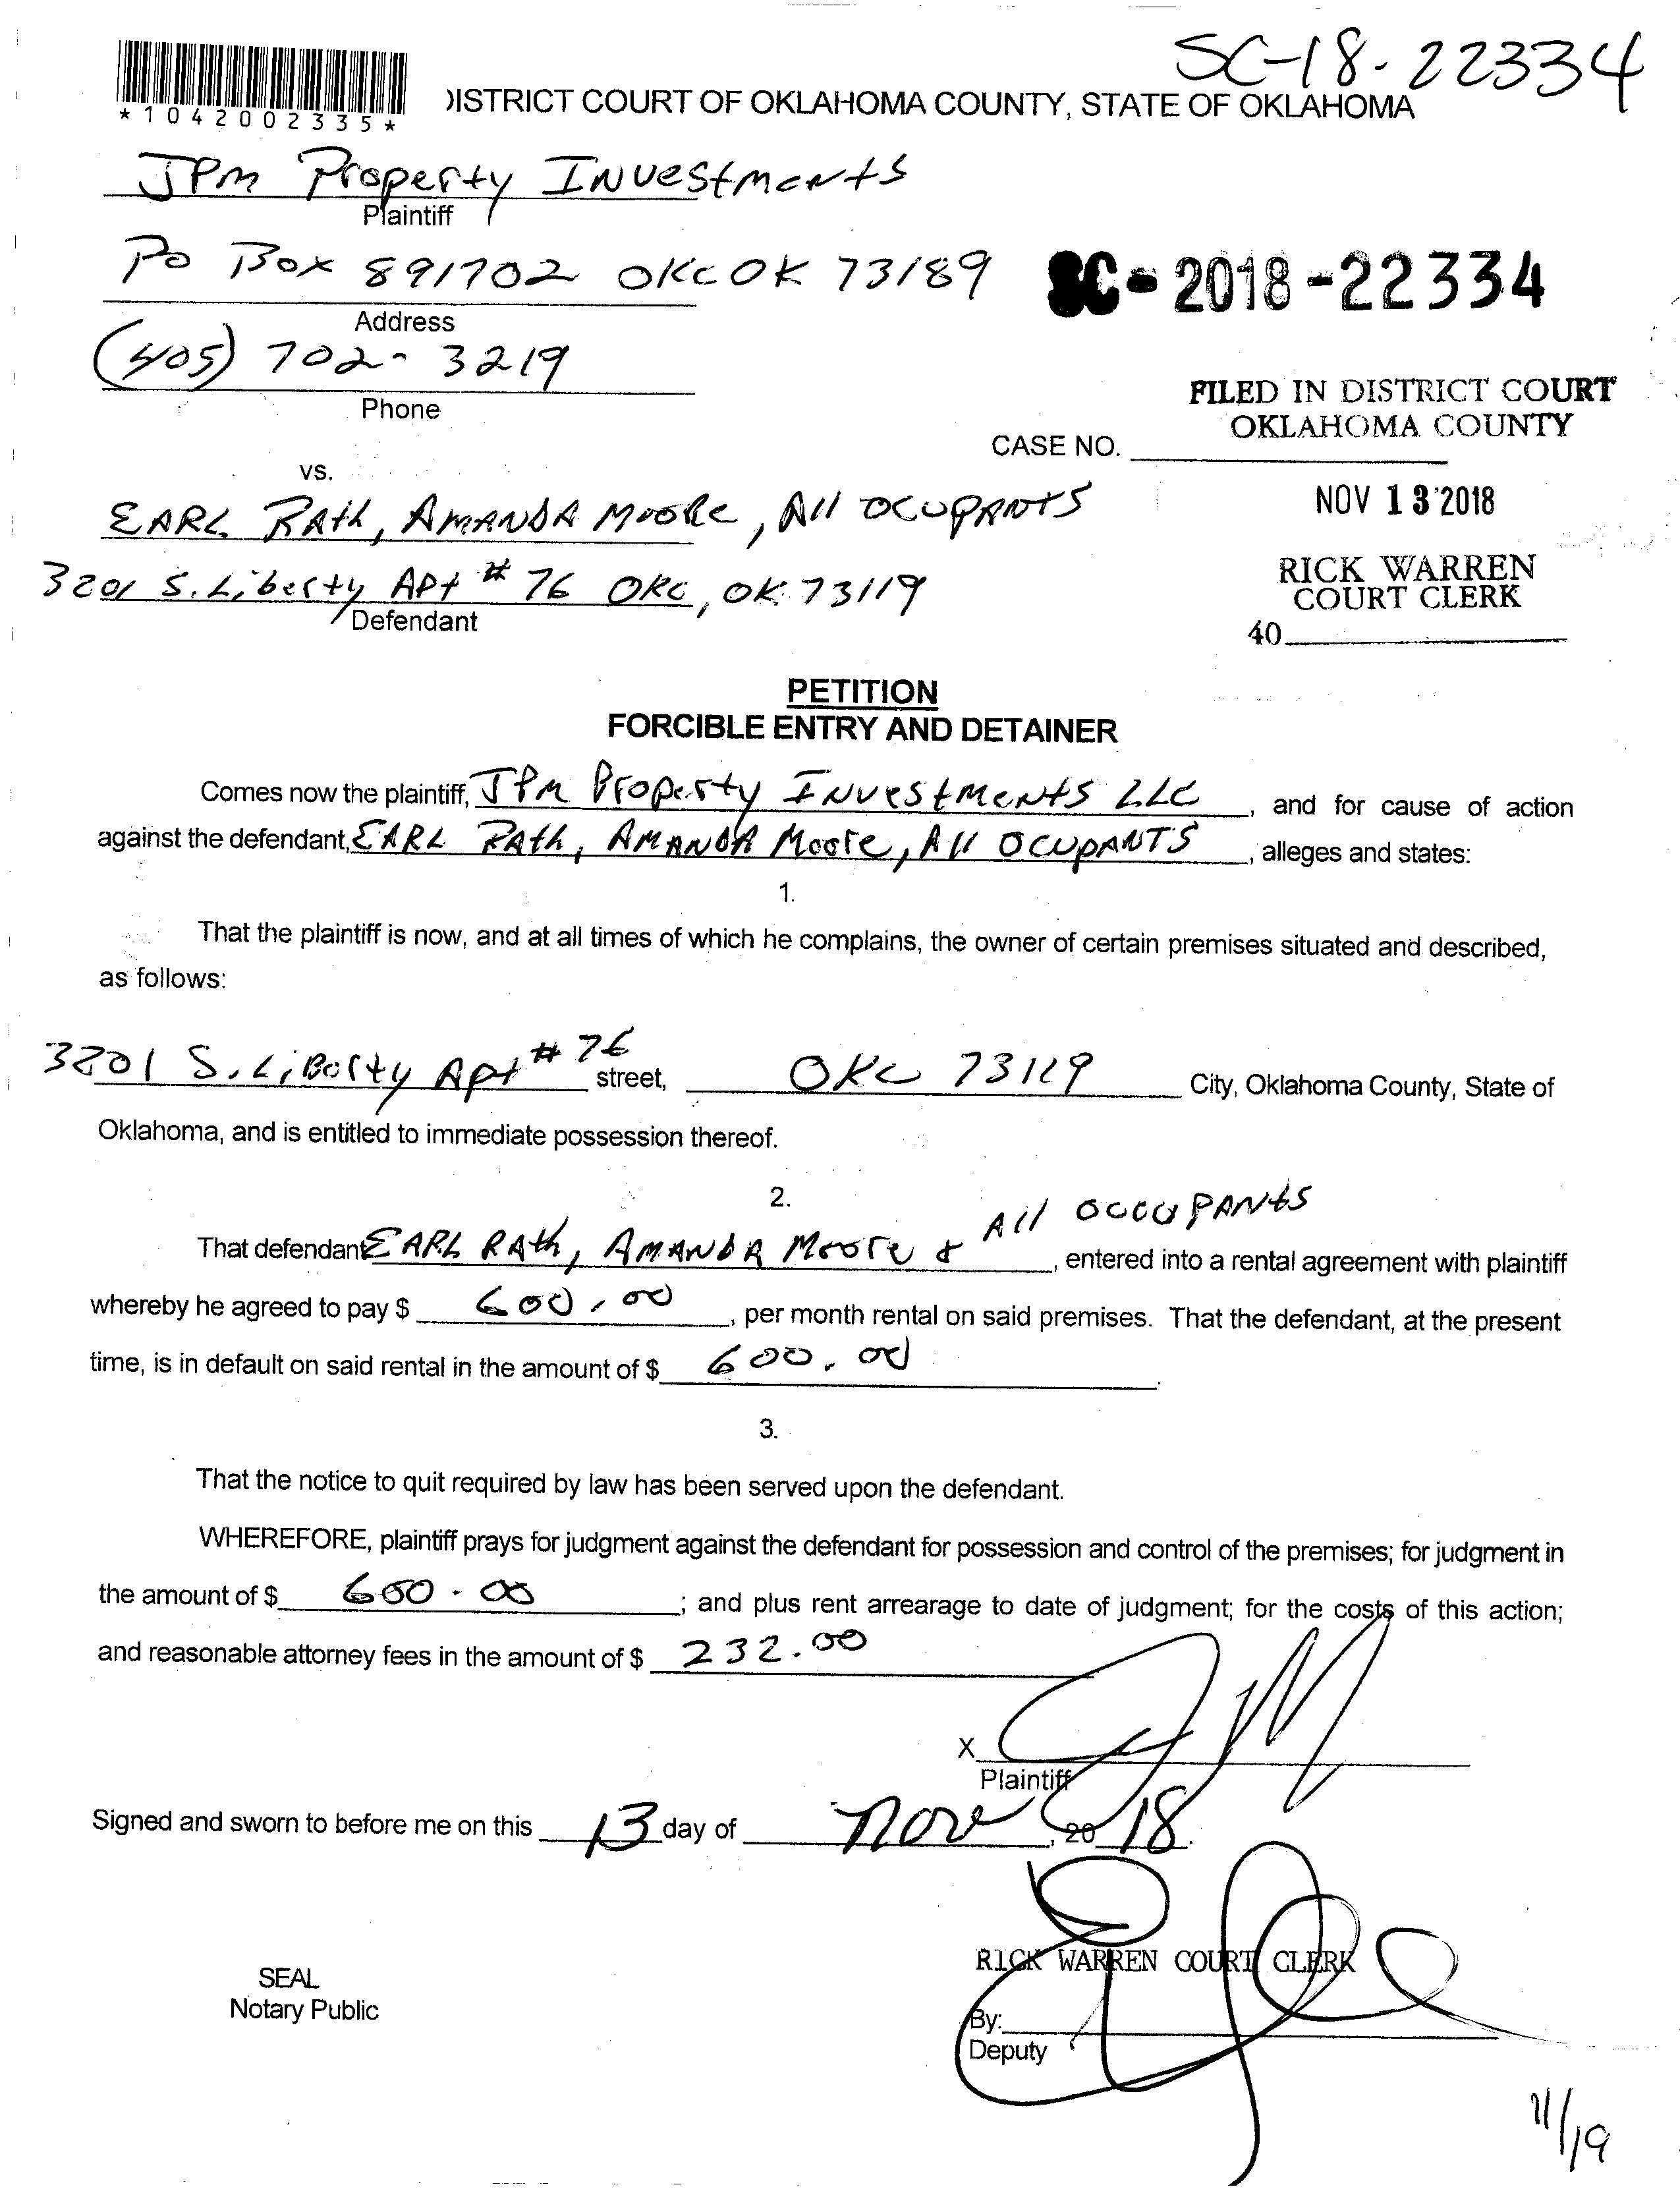 SC-18-22334
*1042002335*
DISTRICT COURT OF OKLAHOMA COUNTY, STATE OF OKLAHOMA
JPM Property Investments
Plaintiff
PO Box 891702 OKC OK 73189
SC-2018-22334
Address
(405) 702-3219
Phone
FILED IN DISTRICT COURT
OKLAHOMA COUNTY
CASE NO.
vs.
NOV 13 2018
EARL RAth, AMANDA Moore, All OCUPANTS
RICK WARREN
COURT CLERK
3201 S. Liberty Apt # 76 OKC, OK 73119
Defendant
40
PETITION
FORCIBLE ENTRY AND DETAINER
Comes now the plaintiff, JPM Property Investments LLC, and for cause of action
against the defendant, EARL RAth, AMANDA Moore, All OCUPANTS, alleges and states:
1.
That the plaintiff is now, and at all times of which he complains, the owner of certain premises situated and described,
as follows:
3201 S. Liberty Apt # 76 street, OKC 73119 City, Oklahoma County, State of
Oklahoma, and is entitled to immediate possession thereof.
2.
That defendant EARL RAth, AMANDA Moore & All OCCUPANTS, entered into a rental agreement with plaintiff
whereby he agreed to pay $ 600.00, per month rental on said premises. That the defendant, at the present
time, is in default on said rental in the amount of $ 600.00.
3.
That the notice to quit required by law has been served upon the defendant.
WHEREFORE, plaintiff prays for judgment against the defendant for possession and control of the premises; for judgment in
the amount of $ 600.00; and plus rent arrearage to date of judgment; for the costs of this action;
and reasonable attorney fees in the amount of $ 232.00
X
Plaintiff
Signed and sworn to before me on this 13 day of Nov, 2018.
RICK WARREN COURT CLERK
SEAL
Notary Public
By:
Deputy
11/19